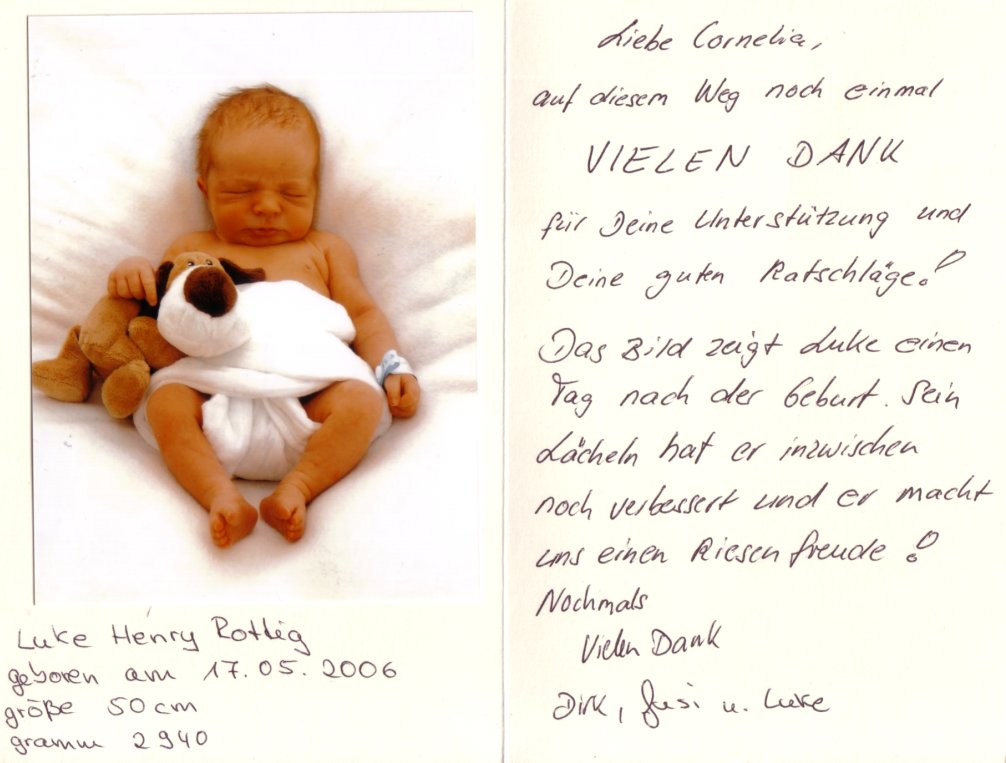 Luke Henry Rotlig
geboren am 17.05.2006
größe 50 cm
gramm 2940
Liebe Cornelia,
auf diesem Weg noch einmal
VIELEN DANK
für Deine Unterstützung und
Deine guten Ratschläge!
Das Bild zeigt Luke einen
Tag nach der Geburt. Sein
Lächeln hat er inzwischen
noch verbessert und er macht
uns einen Riesenfreude!
Nochmals
Vielen Dank
Dirk, Susi u. Luke